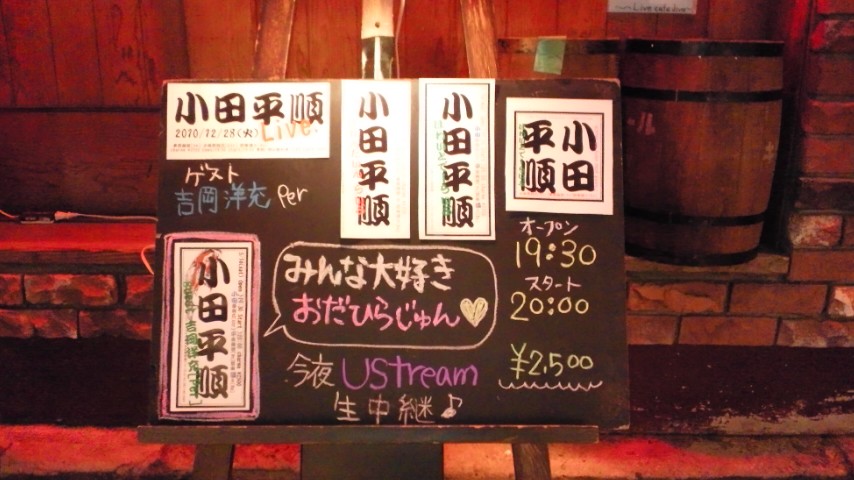 Live cafe dive
小田平順
2010/12/28(火)
Live!
小田平順
小田平順
小田
平順
ゲスト
吉岡洋充 Per
オープン
19:30
スタート
20:00
¥2,500
小田平順
みんな大好き
おだひらじゅん
今夜 UStream
生中継♪